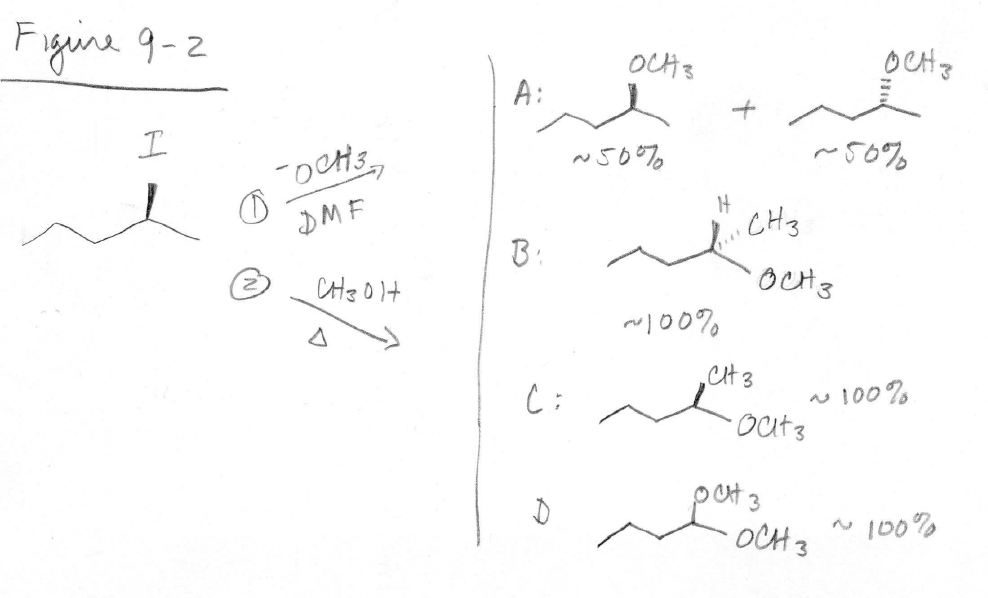 Figure 9-2
I
① ⁻OCH3
DMF
② CH3OH
Δ
A:
OCH3
~50%
+
OCH3
~50%
B:
H
CH3
OCH3
~100%
C:
CH3
OCH3
~100%
D
OCH3
OCH3
~100%